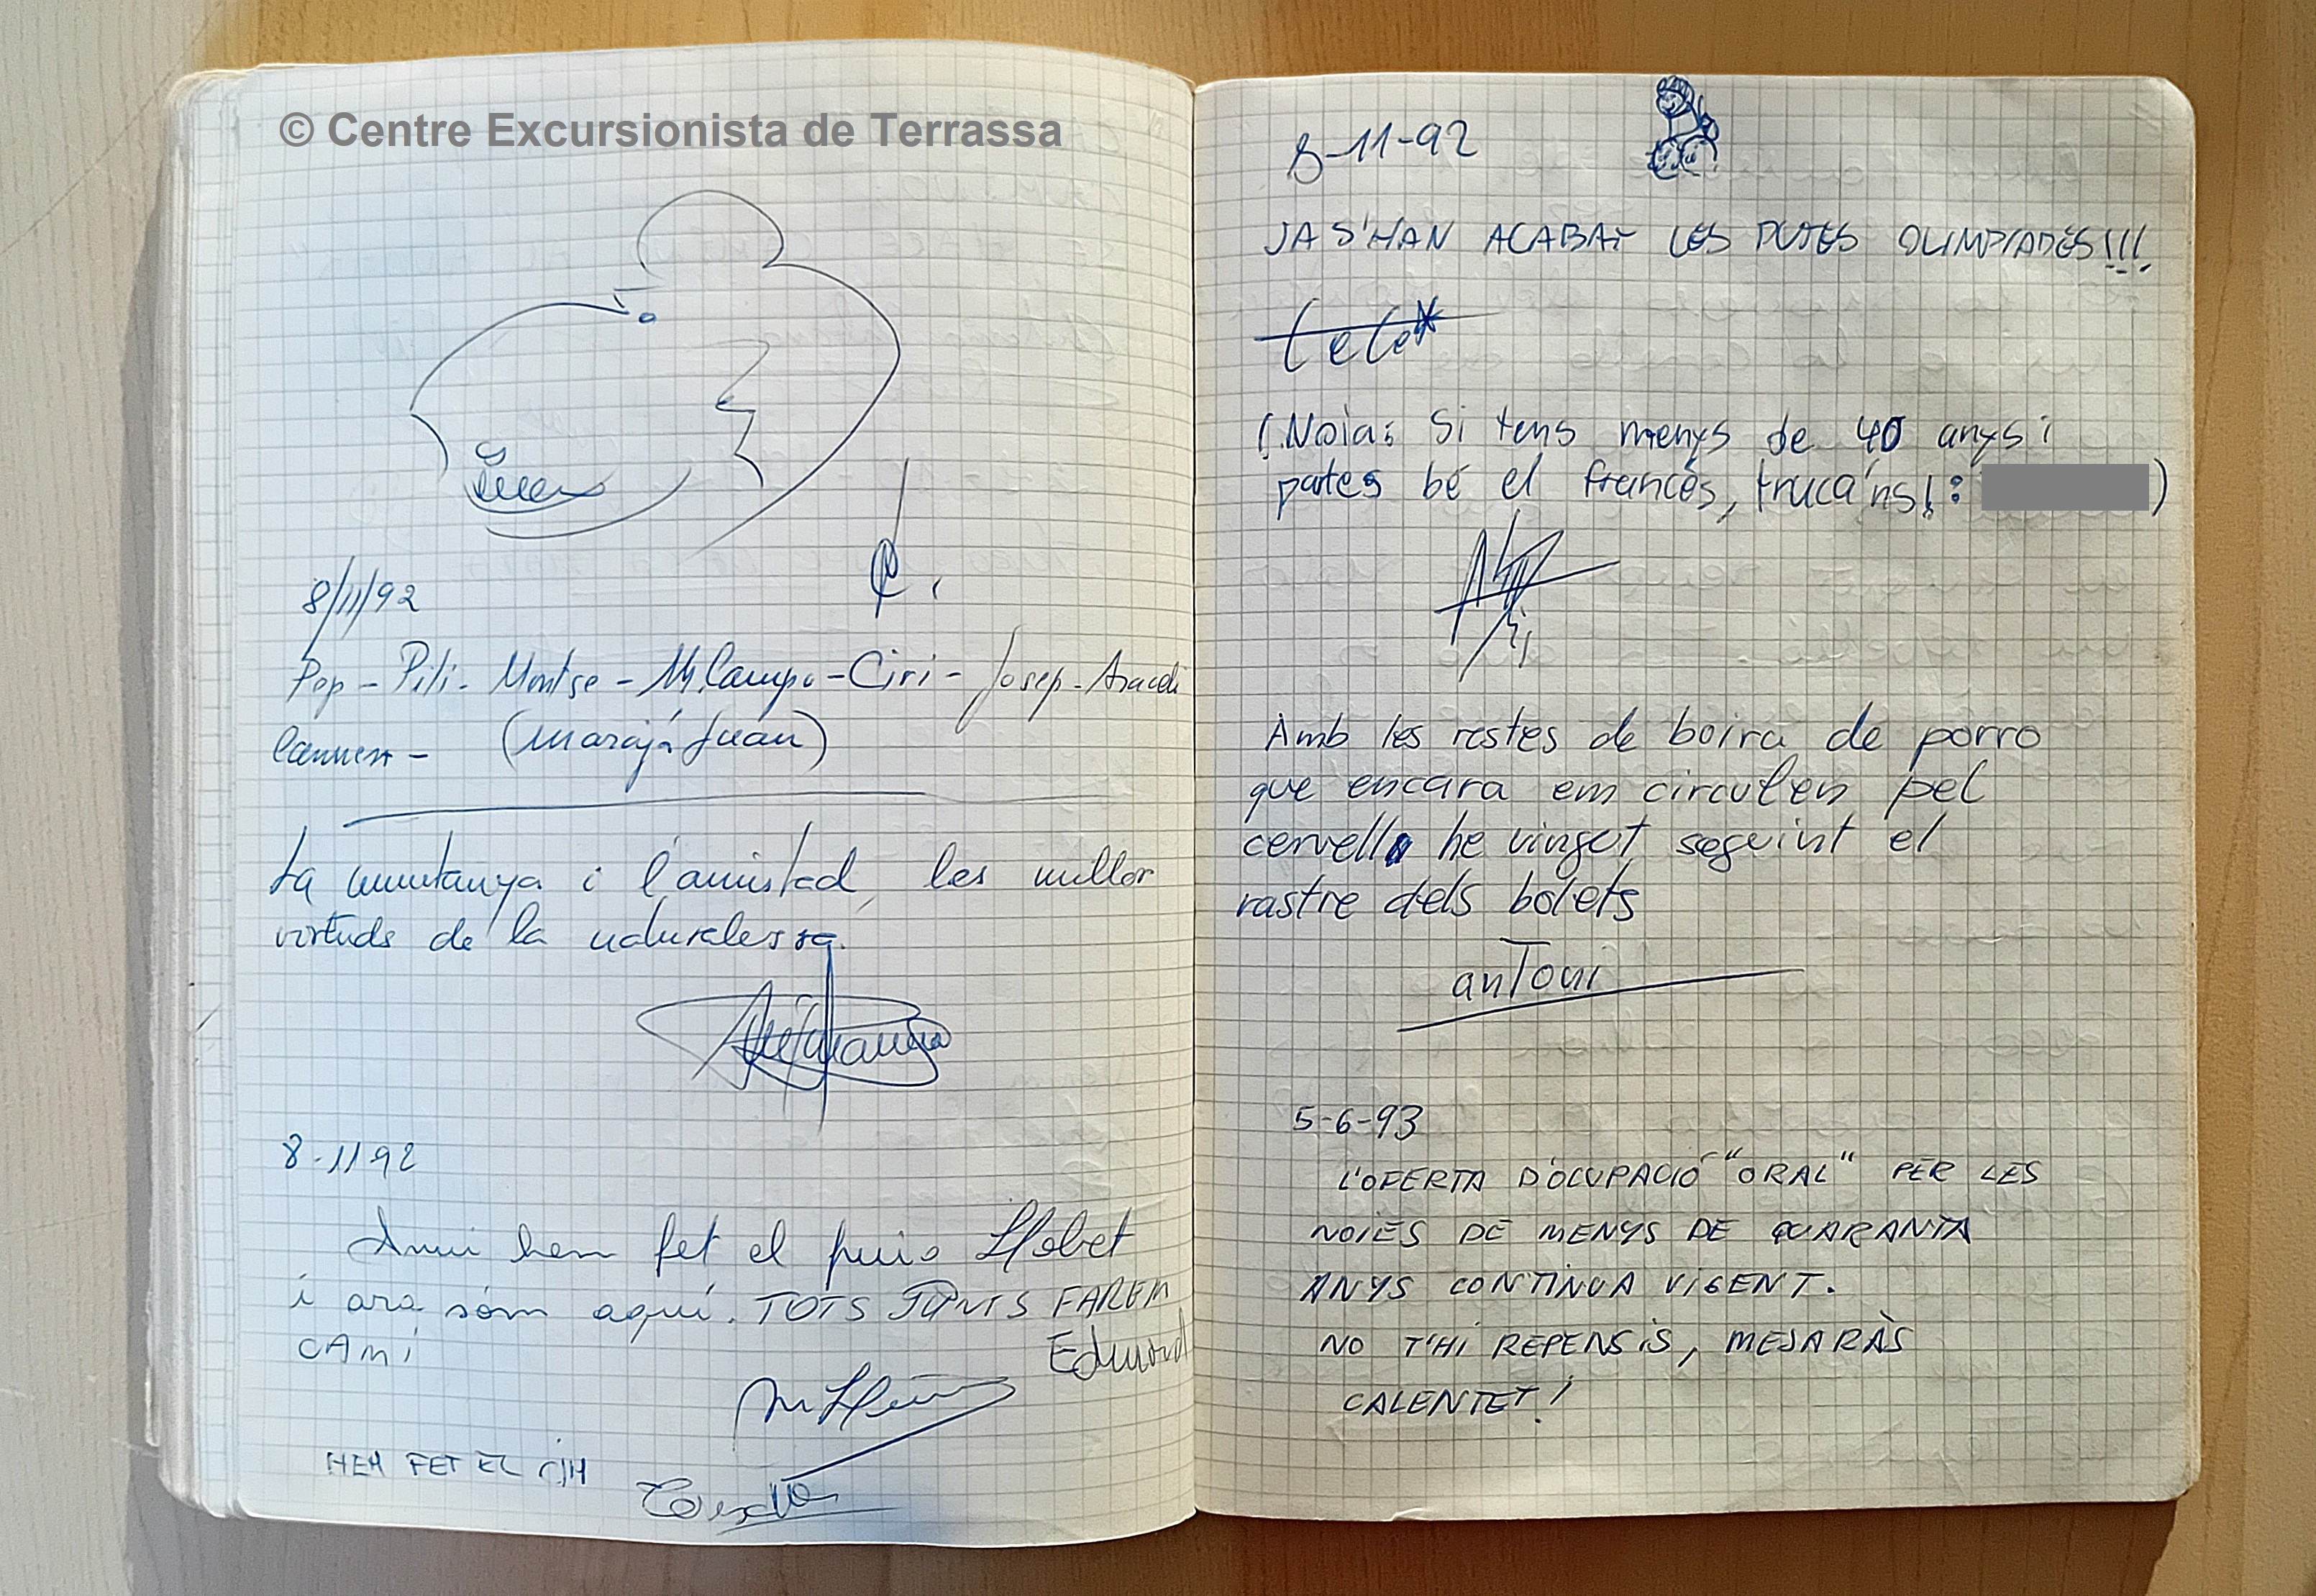 © Centre Excursionista de Terrassa
8/11/92
Pep - Pili - Montse - M. Campo - Ciri - Josep - Araceli
Carmen - (Marajá Juán)
La muntanya i l'amistad, les millor
virtuds de la naturalessa.
8-11 92
Avui hem fet el puig Llobet
i ara sóm aquí. TOTS JUNTS FAREM
CAMí
Eduard
HEM FET EL CIM
8-11-92
JA S'HAN ACABAT LES PUTES OLIMPIADES!!!
tete*
(Noia: Si tens menys de 40 anys i
parles bé el francès, truca'ns!: )
Amb les restes de boira de porro
que encara em circulen pel
cervell he vingut seguint el
rastre dels bolets
anToni
5-6-93
L'OFERTA D'OCUPACIÓ "ORAL" PER LES
NOIES DE MENYS DE QUARANTA
ANYS CONTINUA VIGENT.
NO T'HI REPENSIS, MEJARÀS
CALENTET!